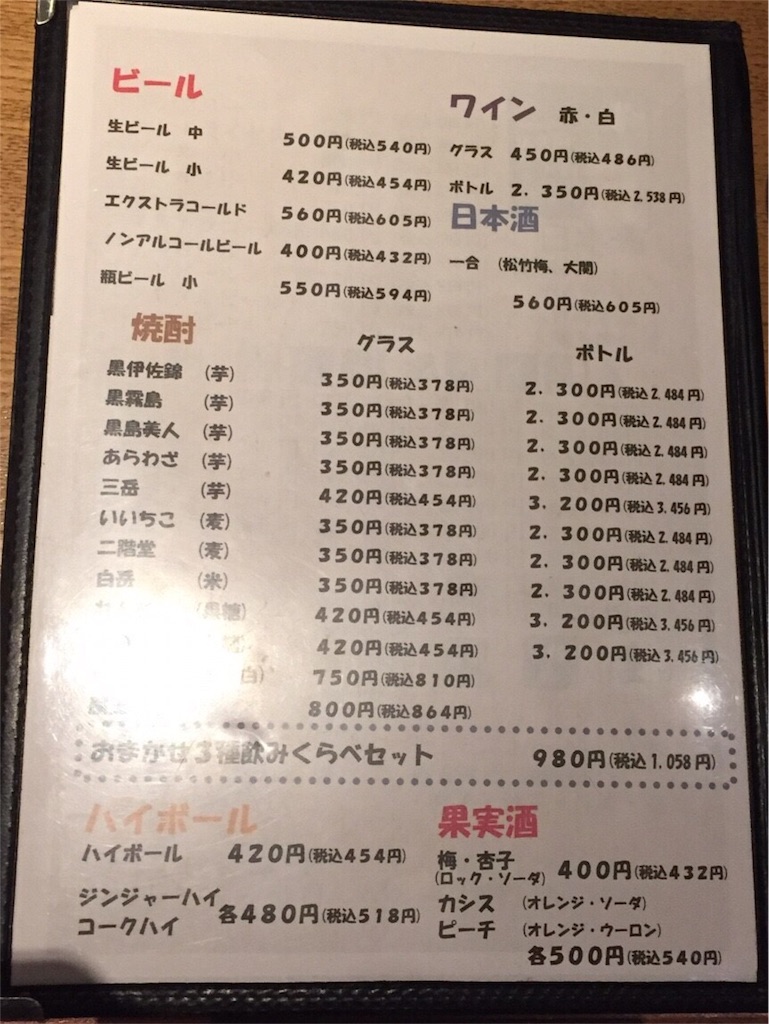 ビール
生ビール 中 500円(税込540円)
生ビール 小 420円(税込454円)
エクストラコールド 560円(税込605円)
ノンアルコールビール 400円(税込432円)
瓶ビール 小 550円(税込594円)
ワイン 赤・白
グラス 450円(税込486円)
ボトル 2.350円(税込2.538円)
日本酒
一合 (松竹梅、大関)
560円(税込605円)
焼酎 グラス ボトル
黒伊佐錦 (芋) 350円(税込378円) 2.300円(税込2.484円)
黒霧島 (芋) 350円(税込378円) 2.300円(税込2.484円)
黒島美人 (芋) 350円(税込378円) 2.300円(税込2.484円)
あらわざ (芋) 350円(税込378円) 2.300円(税込2.484円)
三岳 (芋) 420円(税込454円) 3.200円(税込3.456円)
いいちこ (麦) 350円(税込378円) 2.300円(税込2.484円)
二階堂 (麦) 350円(税込378円) 2.300円(税込2.484円)
白岳 (米) 350円(税込378円) 2.300円(税込2.484円)
(黒糖) 420円(税込454円) 3.200円(税込3.456円)
420円(税込454円) 3.200円(税込3.456円)
白) 750円(税込810円)
800円(税込864円)
おまかせ3種飲みくらべセット 980円(税込1.058円)
ハイボール
ハイボール 420円(税込454円)
ジンジャーハイ
コークハイ 各480円(税込518円)
果実酒
梅・杏子
(ロック・ソーダ) 400円(税込432円)
カシス (オレンジ・ソーダ)
ピーチ (オレンジ・ウーロン)
各500円(税込540円)